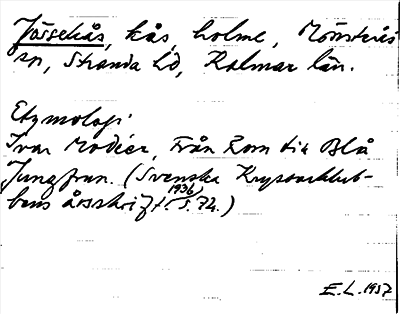 Jässekås, kås, holme, Mönsterås
sn, Stranda hd, Kalmar län.
Etymologi:
Ivar Modéer, Från Rom till Blå
Jungfrun. (Svenska Kryssarklub-
bens årsskrift. 1936, s. 74.)
E.L. 1957